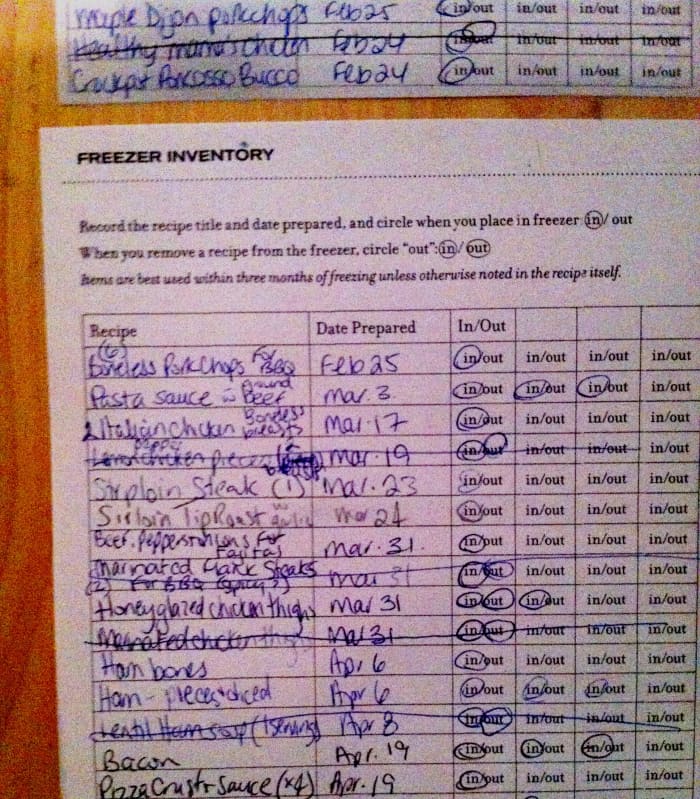 maple Dijon porkchops Feb 25 in/out in/out in/out in/out
Healthy mama's chicken Feb 24 in/out in/out in/out in/out
Crockpot Porcosso Bucco Feb 24 in/out in/out in/out in/out
FREEZER INVENTORY
Record the recipe title and date prepared, and circle when you place in freezer in / out
When you remove a recipe from the freezer, circle "out": in / out
Items are best used within three months of freezing unless otherwise noted in the recipe itself.
Recipe Date Prepared In/Out
(6)
Boneless Porkchops For BBQ Feb 25 in/out in/out in/out in/out
Pasta sauce w Ground Beef Mar. 3 in/out in/out in/out in/out
2 Italian chicken Boneless breasts Mar. 17 in/out in/out in/out in/out
chicken pieces Mar. 19 in/out in/out in/out in/out
Sirploin Steak (1) Mar. 23 in/out in/out in/out in/out
Sirloin Tip Roast Mar 24 in/out in/out in/out in/out
Beef, peppers + onions for Fajitas Mar. 31. in/out in/out in/out in/out
marinated Flank Steaks
(2) For BBQ (spicy) Mar 31 in/out in/out in/out in/out
Honeyglazed chicken thighs Mar 31 in/out in/out in/out in/out
Marinated chicken thighs Mar 31 in/out in/out in/out in/out
Ham bones Apr 6 in/out in/out in/out in/out
Ham - pieces + diced Apr 6 in/out in/out in/out in/out
Lentil Ham soup (1 serving) Apr 8 in/out in/out in/out in/out
Bacon Apr. 19 in/out in/out in/out in/out
Pizza Crust + Sauce (x4) Apr. 19 in/out in/out in/out in/out